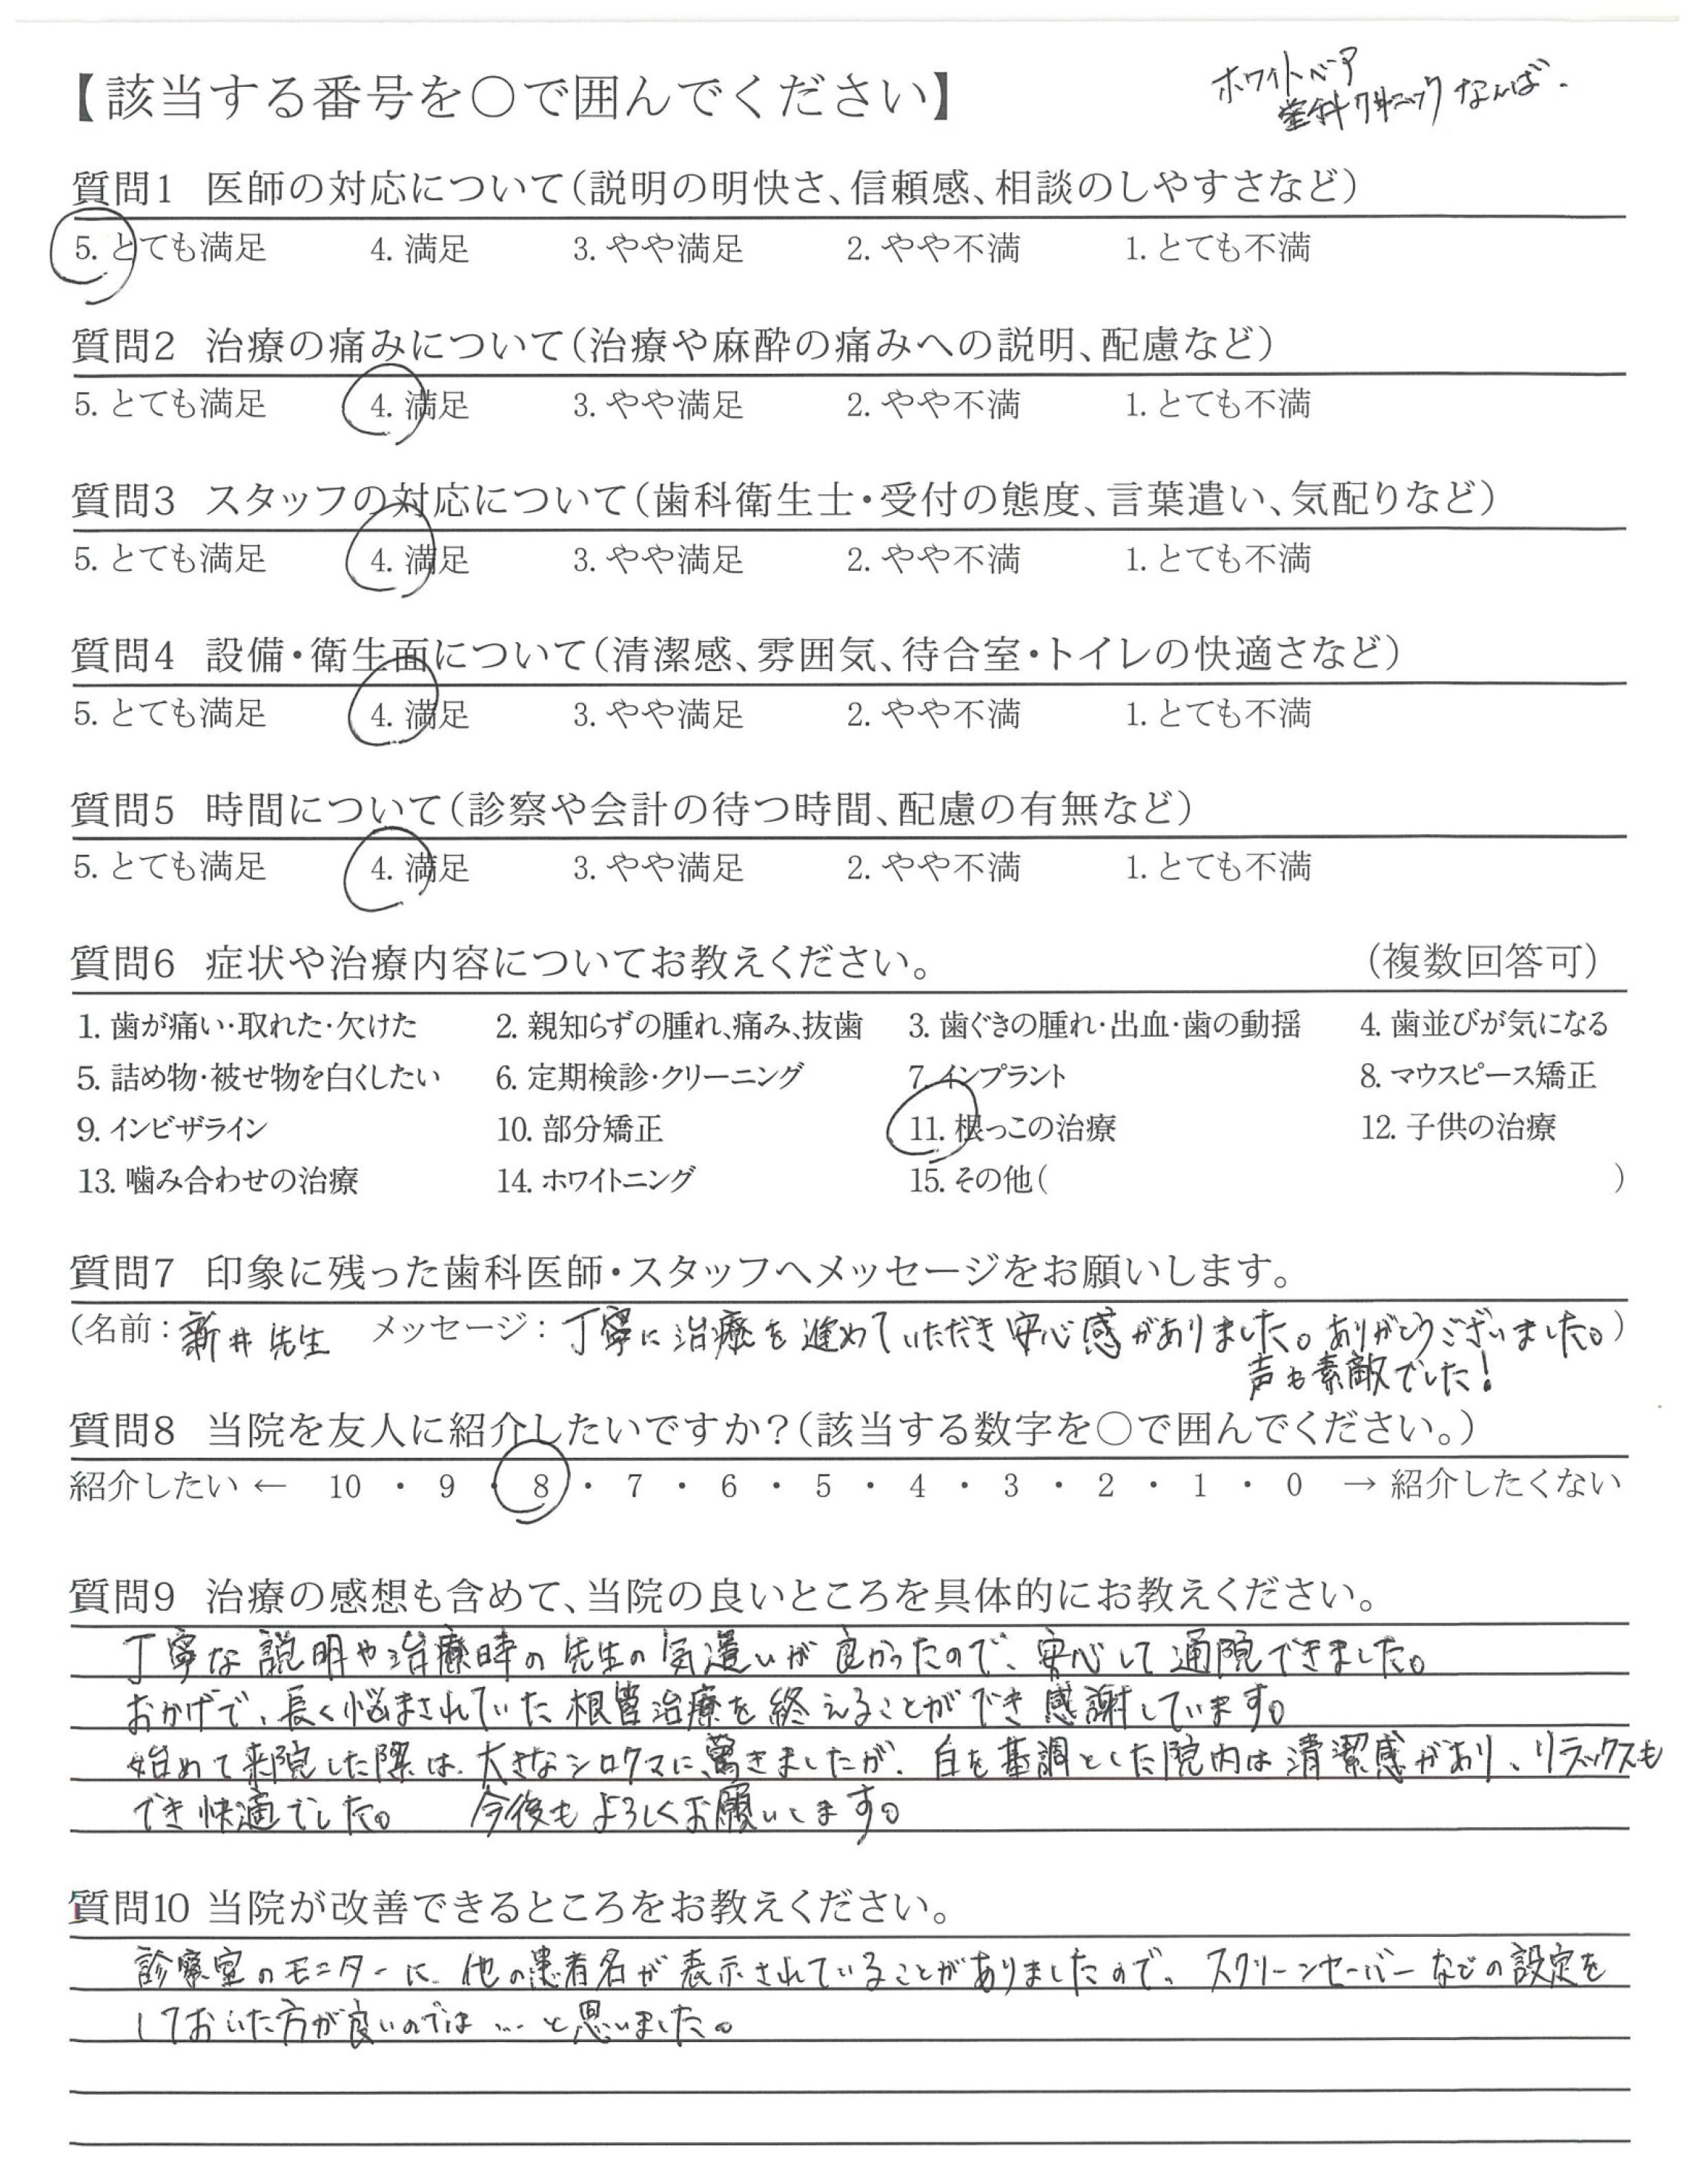 【該当する番号を○で囲んでください】
ホワイトベア
歯科クリニック なんば.
質問1 医師の対応について(説明の明快さ、信頼感、相談のしやすさなど)
5. とても満足 4. 満足 3. やや満足 2. やや不満 1. とても不満
質問2 治療の痛みについて(治療や麻酔の痛みへの説明、配慮など)
5. とても満足 4. 満足 3. やや満足 2. やや不満 1. とても不満
質問3 スタッフの対応について(歯科衛生士・受付の態度、言葉遣い、気配りなど)
5. とても満足 4. 満足 3. やや満足 2. やや不満 1. とても不満
質問4 設備・衛生面について(清潔感、雰囲気、待合室・トイレの快適さなど)
5. とても満足 4. 満足 3. やや満足 2. やや不満 1. とても不満
質問5 時間について(診察や会計の待つ時間、配慮の有無など)
5. とても満足 4. 満足 3. やや満足 2. やや不満 1. とても不満
質問6 症状や治療内容についてお教えください。 (複数回答可)
1. 歯が痛い・取れた・欠けた 2. 親知らずの腫れ、痛み、抜歯 3. 歯ぐきの腫れ・出血・歯の動揺 4. 歯並びが気になる
5. 詰め物・被せ物を白くしたい 6. 定期検診・クリーニング 7. インプラント 8. マウスピース矯正
9. インビザライン 10. 部分矯正 11. 根っこの治療 12. 子供の治療
13. 噛み合わせの治療 14. ホワイトニング 15. その他( )
質問7 印象に残った歯科医師・スタッフへメッセージをお願いします。
(名前：新井先生 メッセージ：丁寧に治療を進めていただき安心感がありました。ありがとうございました。)
声も素敵でした！
質問8 当院を友人に紹介したいですか？(該当する数字を○で囲んでください。)
紹介したい ← 10 ・ 9 ・ 8 ・ 7 ・ 6 ・ 5 ・ 4 ・ 3 ・ 2 ・ 1 ・ 0 → 紹介したくない
質問9 治療の感想も含めて、当院の良いところを具体的にお教えください。
丁寧な説明や治療時の先生の気遣いが良かったので、安心して通院できました。
おかげで、長く悩まされていた根管治療を終えることができ感謝しています。
始めて来院した際は、大きなシロクマに驚きましたが、白を基調とした院内は清潔感があり、リラックスも
でき快適でした。 今後もよろしくお願いします。
質問10 当院が改善できるところをお教えください。
診察室のモニターに、他の患者名が表示されていることがありましたので、スクリーンセーバーなどの設定を
しておいた方が良いのでは…と思いました。